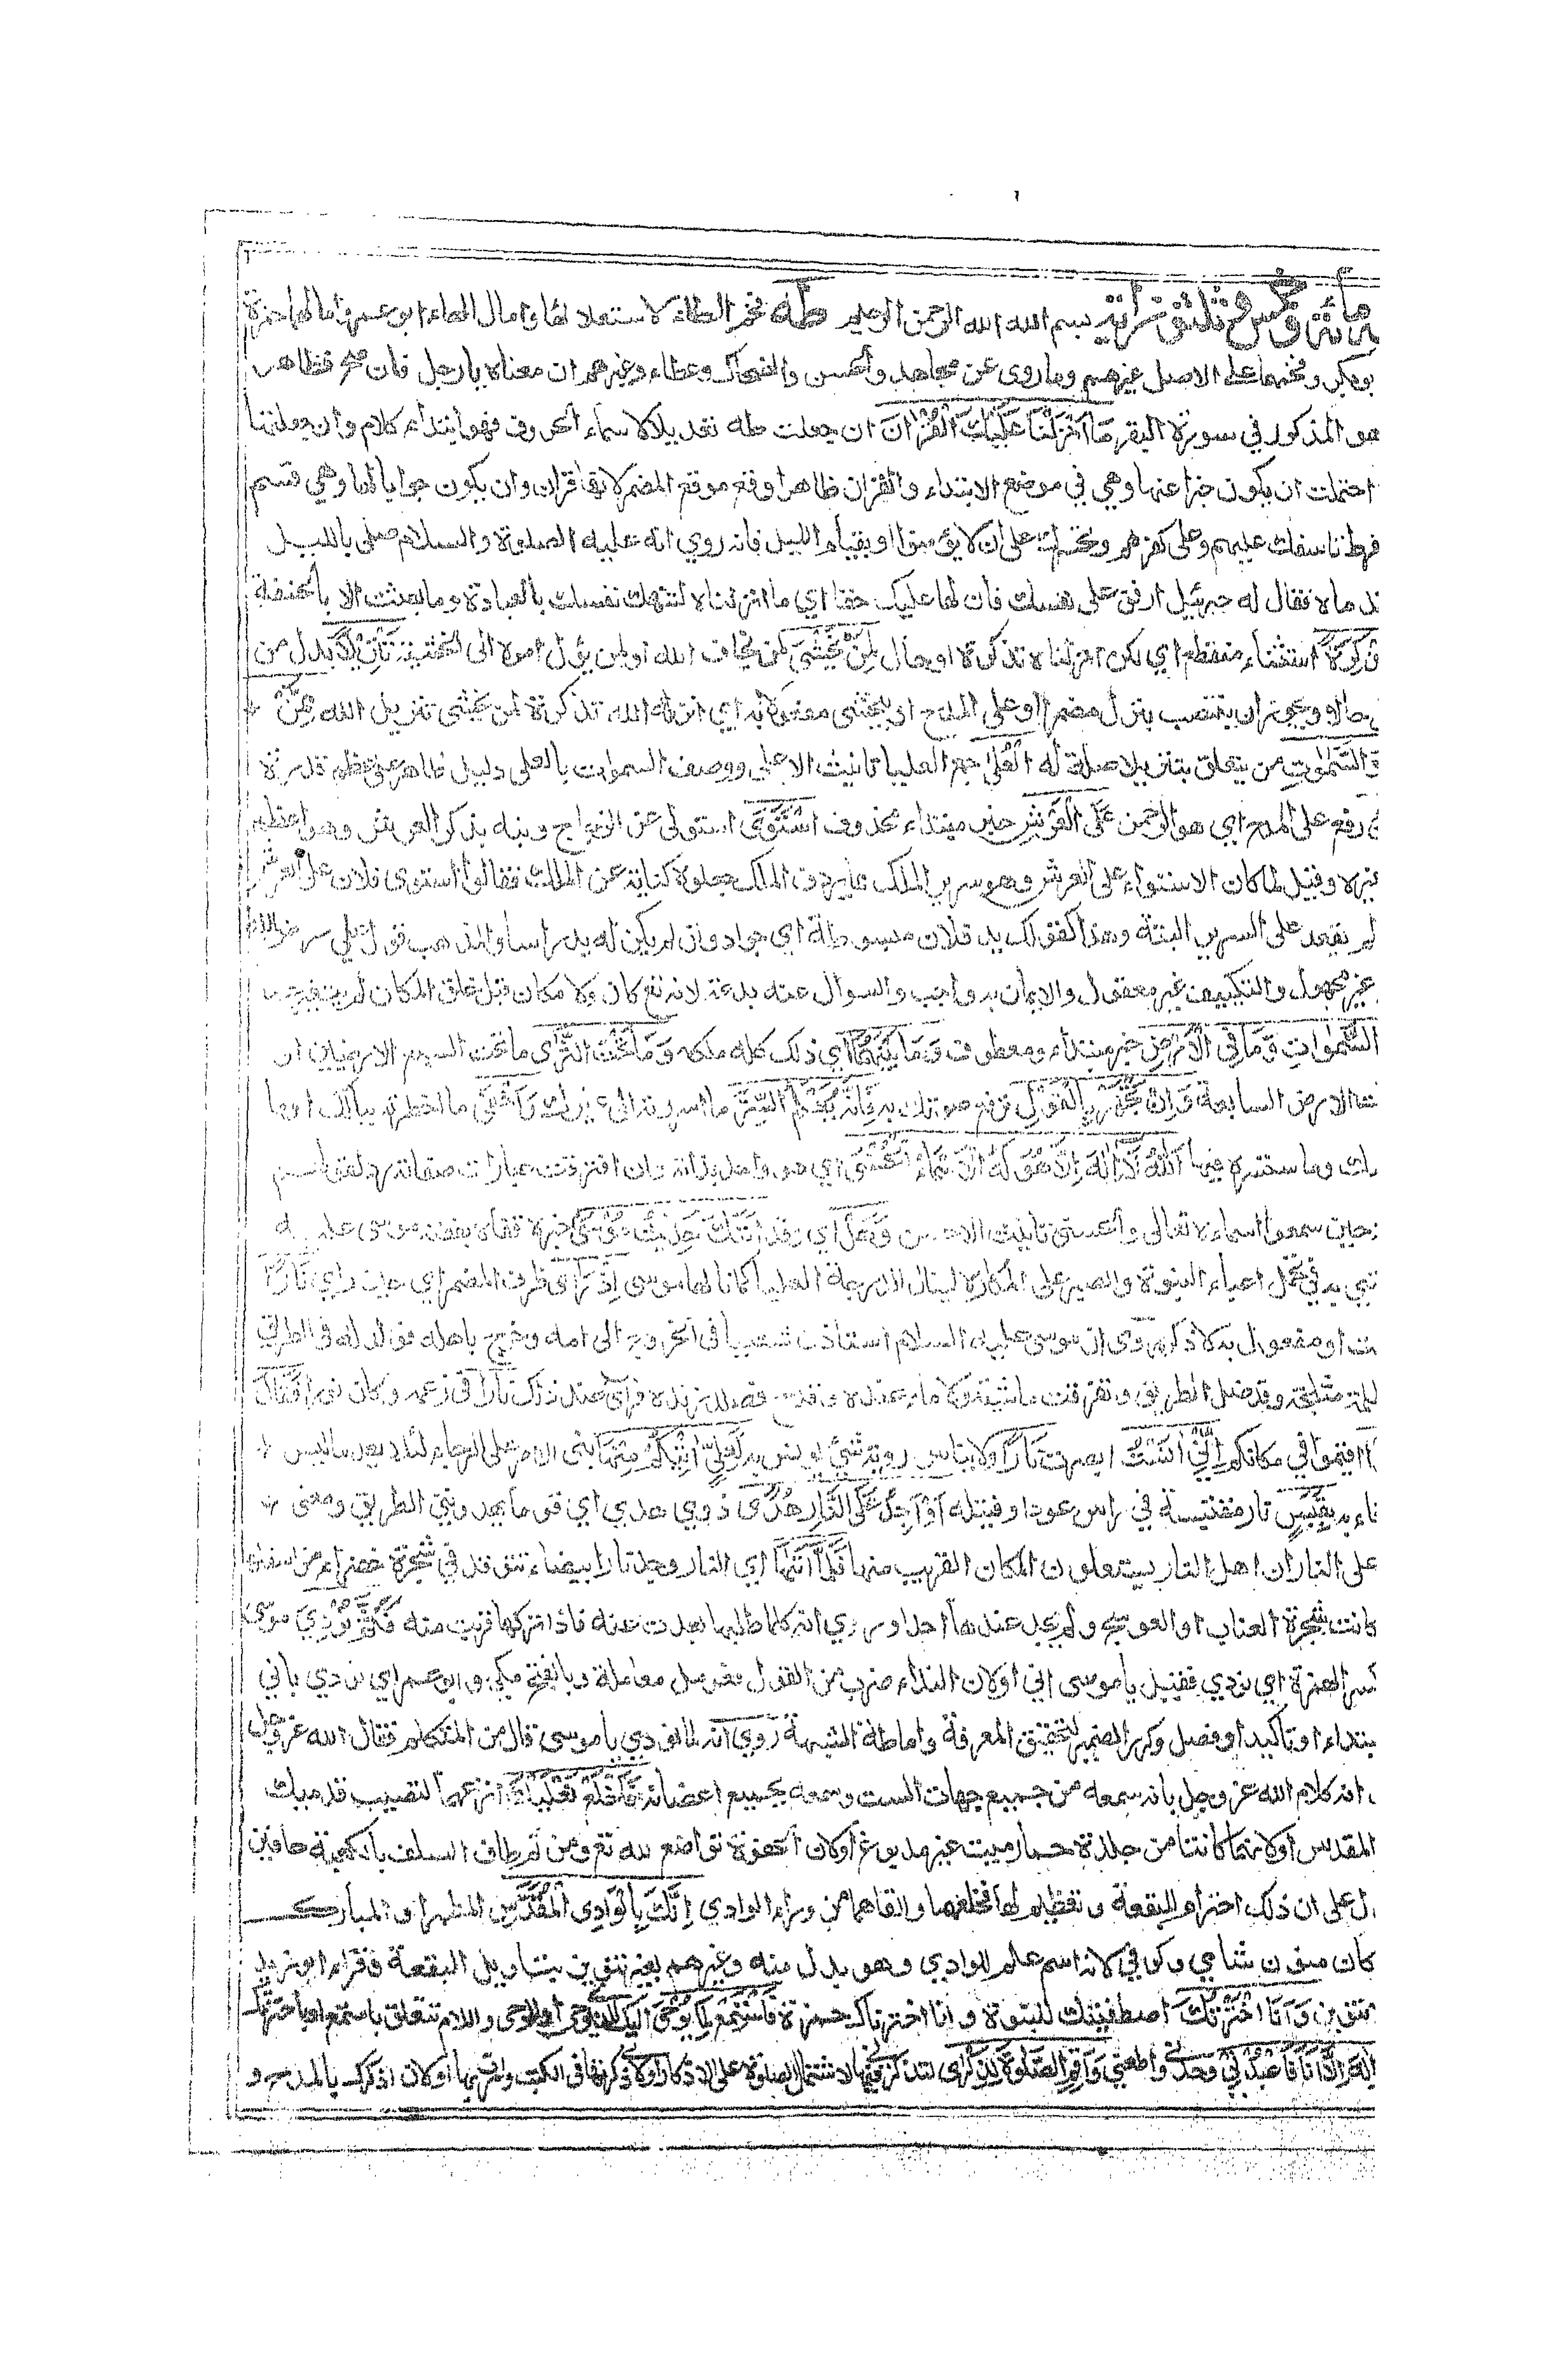 مائة وخمس وثلثون اية بسم الله الرحمن الرحيم طه فخم الطاء لاستعلائها وامال الهاء ابو عمرو وامالهما حمزة
بوبكر وفخمهما على الاصل غيرهم وما روى عن مجاهد والحسن والضحاك وعطاء وغيرهم ان معناه يا رجل فان صح فظاهر
هو المذكور في سورة البقرة مَا اَنْزَلْنَا عَلَيْكَ الْقُرْاٰنَ ان جعلت طه تعديدا لاسماء الحروف فهو ابتداء كلام وان جعلتها
احتملت ان يكون خبرا عنها وهي في موضع الابتداء والقران ظاهرا وقع موقع المضمر لانها قران وان يكون جوابا لها وهي قسم
فرط تاسفك عليهم وعلى كفرهم وتحسرك على ان لا يؤمنوا او بقيام الليل فانه روي انه عليه الصلوة والسلام صلى بالليل
قدماه فقال له جبرئيل ارفق على نفسك فان لها عليك حقا اي ما انزلناه لتنهك نفسك بالعبادة وما بعثت الا بالحنفية
تَذْكِرَةً استثناء منقطع اي لكن انزلناه تذكرة او حال لِمَنْ يَخْشٰى لمن يخاف الله او لمن يؤل امره الى الخشية تَنْزِيْلًا بدل من
حالا ويجوز ان ينتصب بنزل مضمرا او على المدح او بيخشى مفعولا به اي انزله الله تذكرة لمن يخشى تنزيل الله مِمَّنْ
وَالسَّمٰوٰتِ من يتعلق بتنزيلا صلة له الْعُلٰى جمع العليا تانيث الاعلى ووصف السموات بالعلى دليل ظاهر على عظم قدرة
رفع على المدح اي هو الرحمن عَلَى الْعَرْشِ خبر مبتداء محذوف اسْتَوٰى استولى عن الزجاج ونبه بذكر العرش وهو اعظم
غيره وقيل لما كان الاستواء على العرش وهو سرير الملك مما يردف الملك جعلوه كناية عن الملك فقالوا استوى فلان على العرش
لم يقعد على السرير البتة وهذا كقولك يد فلان مبسوطة اي جواد وان لم يكن له يد راسا والمذهب قول علي رضي الله
غير مجهول والتكييف غير معقول والايمان به واجب والسوال عنه بدعة لانه تع كان ولا مكان قبل خلق المكان لم يتغير
السَّمٰوَاتِ وَمَا فِي الْاَرْضِ خبر مبتداء ومعطوف وَمَا بَيْنَهُمَا اي ذلك كله ملكه وَمَا تَحْتَ الثَّرٰى ما تحت السبع الارضين او
الارض السابعة وَاِنْ تَجْهَرْ بِالْقَوْلِ ترفع صوتك به فَاِنَّهٗ يَعْلَمُ السِّرَّ ما اسررته الى غيرك وَاَخْفٰى ما اخطرته ببالك او ما
وما ستسره فيها اَللّٰهُ لَا اِلٰهَ اِلَّا هُوَ لَهُ الْاَسْمَاءُ الْحُسْنٰى اي هو واحد بذاته وان افترقت عبارات صفاته رد لقولهم
حين سمعوا اسماءه تعالى والحسنى تانيث الاحسن وَهَلْ اي وقد اَتٰكَ حَدِيْثُ مُوْسٰى خبره قفاه بقصة موسى عليه
به في تحمل اعباء النبوة والصبر على المكاره لينال الدرجة العليا كما نالها موسى اِذْ رَاٰى ظرف لمضمر اي حين راى نَارًا
او مفعول به لاذكر روى ان موسى عليه السلام استاذن شعيبا في الخروج الى امه وخرج باهله فولد له في الطريق
مثلجة وقد ضل الطريق وتفرقت ماشيته ولا ماء عنده وقدح فصلد زنده فراى عند ذلك نارا في زعمه وكان نورا فَقَالَ
اقيموا في مكانكم اِنِّيْ اٰنَسْتُ ابصرت نَارًا والايناس روية شيء يونس به لَعَلِّيْ اٰتِيْكُمْ مِنْهَا بنى الامر على الرجاء لئلا يعد ما ليس
بِقَبَسٍ نار مقتبسة في راس عود او فتيلة اَوْ اَجِدُ عَلَى النَّارِ هُدًى ذوي هدى اي قوما يهدونني الطريق ومعنى
على النار ان اهل النار يستعلون المكان القريب منها فَلَمَّا اَتٰهَا اي النار وجد نارا بيضاء تتوقد في شجرة خضراء من اسفلها
كانت شجرة العناب او العوسج ولم يجد عندها احدا وروي انه كلما طلبها بعدت عنه فاذا تركها قربت منه نُوْدِيَ موسى
الهمزة اي نودي فقيل يا موسى اني اولان النداء ضرب من القول فعومل معاملته وبالفتح مكي وابو عمرو اي نودي باني
مبتداء او تاكيد او فصل وكرر الضمير لتحقيق المعرفة واماطة الشبهة روي انه لما نودي يا موسى قال من المتكلم فقال الله عز وجل
انه كلام الله عز وجل بانه سمعه من جميع جهات الست وسمعه بجميع اعضائه فَاخْلَعْ نَعْلَيْكَ انزعهما لتصيب قدميك
المقدس اولانهما كانتا من جلد حمار ميت غير مدبوغ اولان الحفوة تواضع لله تع ومن ثم طاف السلف بالكعبة حافين
على ان ذلك احترام للبقعة وتعظيم لها فخلعهما والقاهما من وراء الوادي اِنَّكَ بِالْوَادِي الْمُقَدَّسِ المطهر او المبارك
كان منون شامي وكوفي لانه اسم علم للوادي وهو بدل منه وغيرهم بغير تنوين بتاويل البقعة وقراء ابو زيد
تنوين وَاَنَا اخْتَرْتُكَ اصطفيتك للنبوة وانا اخترناك حمزة فَاسْتَمِعْ لِمَا يُوْحٰى اليك للذي يوحى او للوحى واللام تتعلق باستمع او باخترتك
اِلٰهَ اِلَّا اَنَا فَاعْبُدْنِيْ وحدني واطعني وَاَقِمِ الصَّلٰوةَ لِذِكْرِيْ لتذكرني فيها لاشتمال الصلوة على الاذكار او لاني ذكرتها في الكتب وامرت بها اولان اذكرك بالمدح و